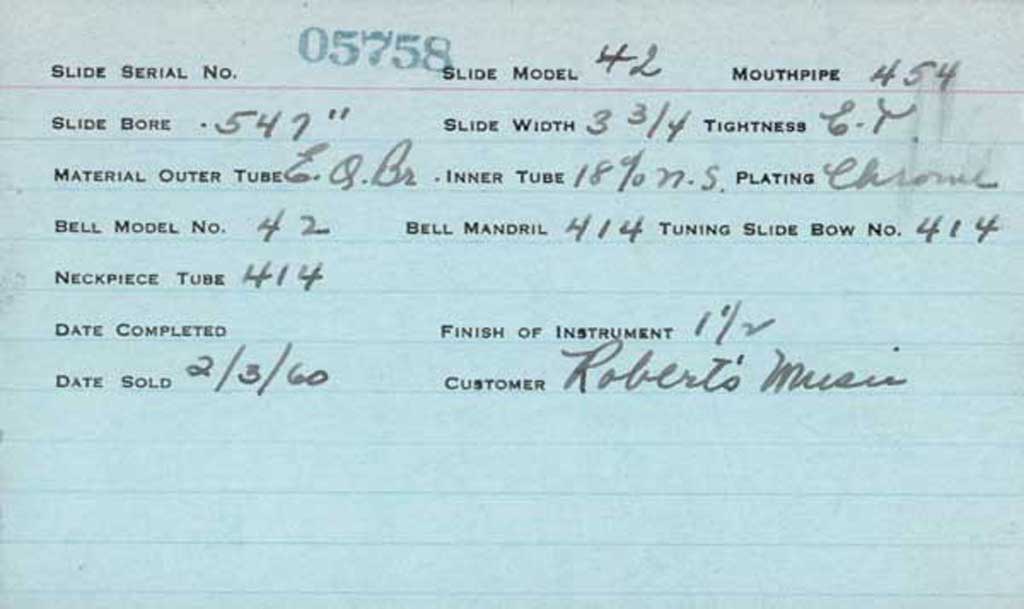 05758
SLIDE SERIAL NO. SLIDE MODEL 42 MOUTHPIPE 454
SLIDE BORE .547" SLIDE WIDTH 3 3/4 TIGHTNESS E-T
MATERIAL OUTER TUBE E.Q.Br. INNER TUBE 18% N.S. PLATING Chrome
BELL MODEL NO. 42 BELL MANDRIL 414 TUNING SLIDE BOW NO. 414
NECKPIECE TUBE 414
DATE COMPLETED FINISH OF INSTRUMENT 1 1/2
DATE SOLD 2/3/60 CUSTOMER Robert's Music